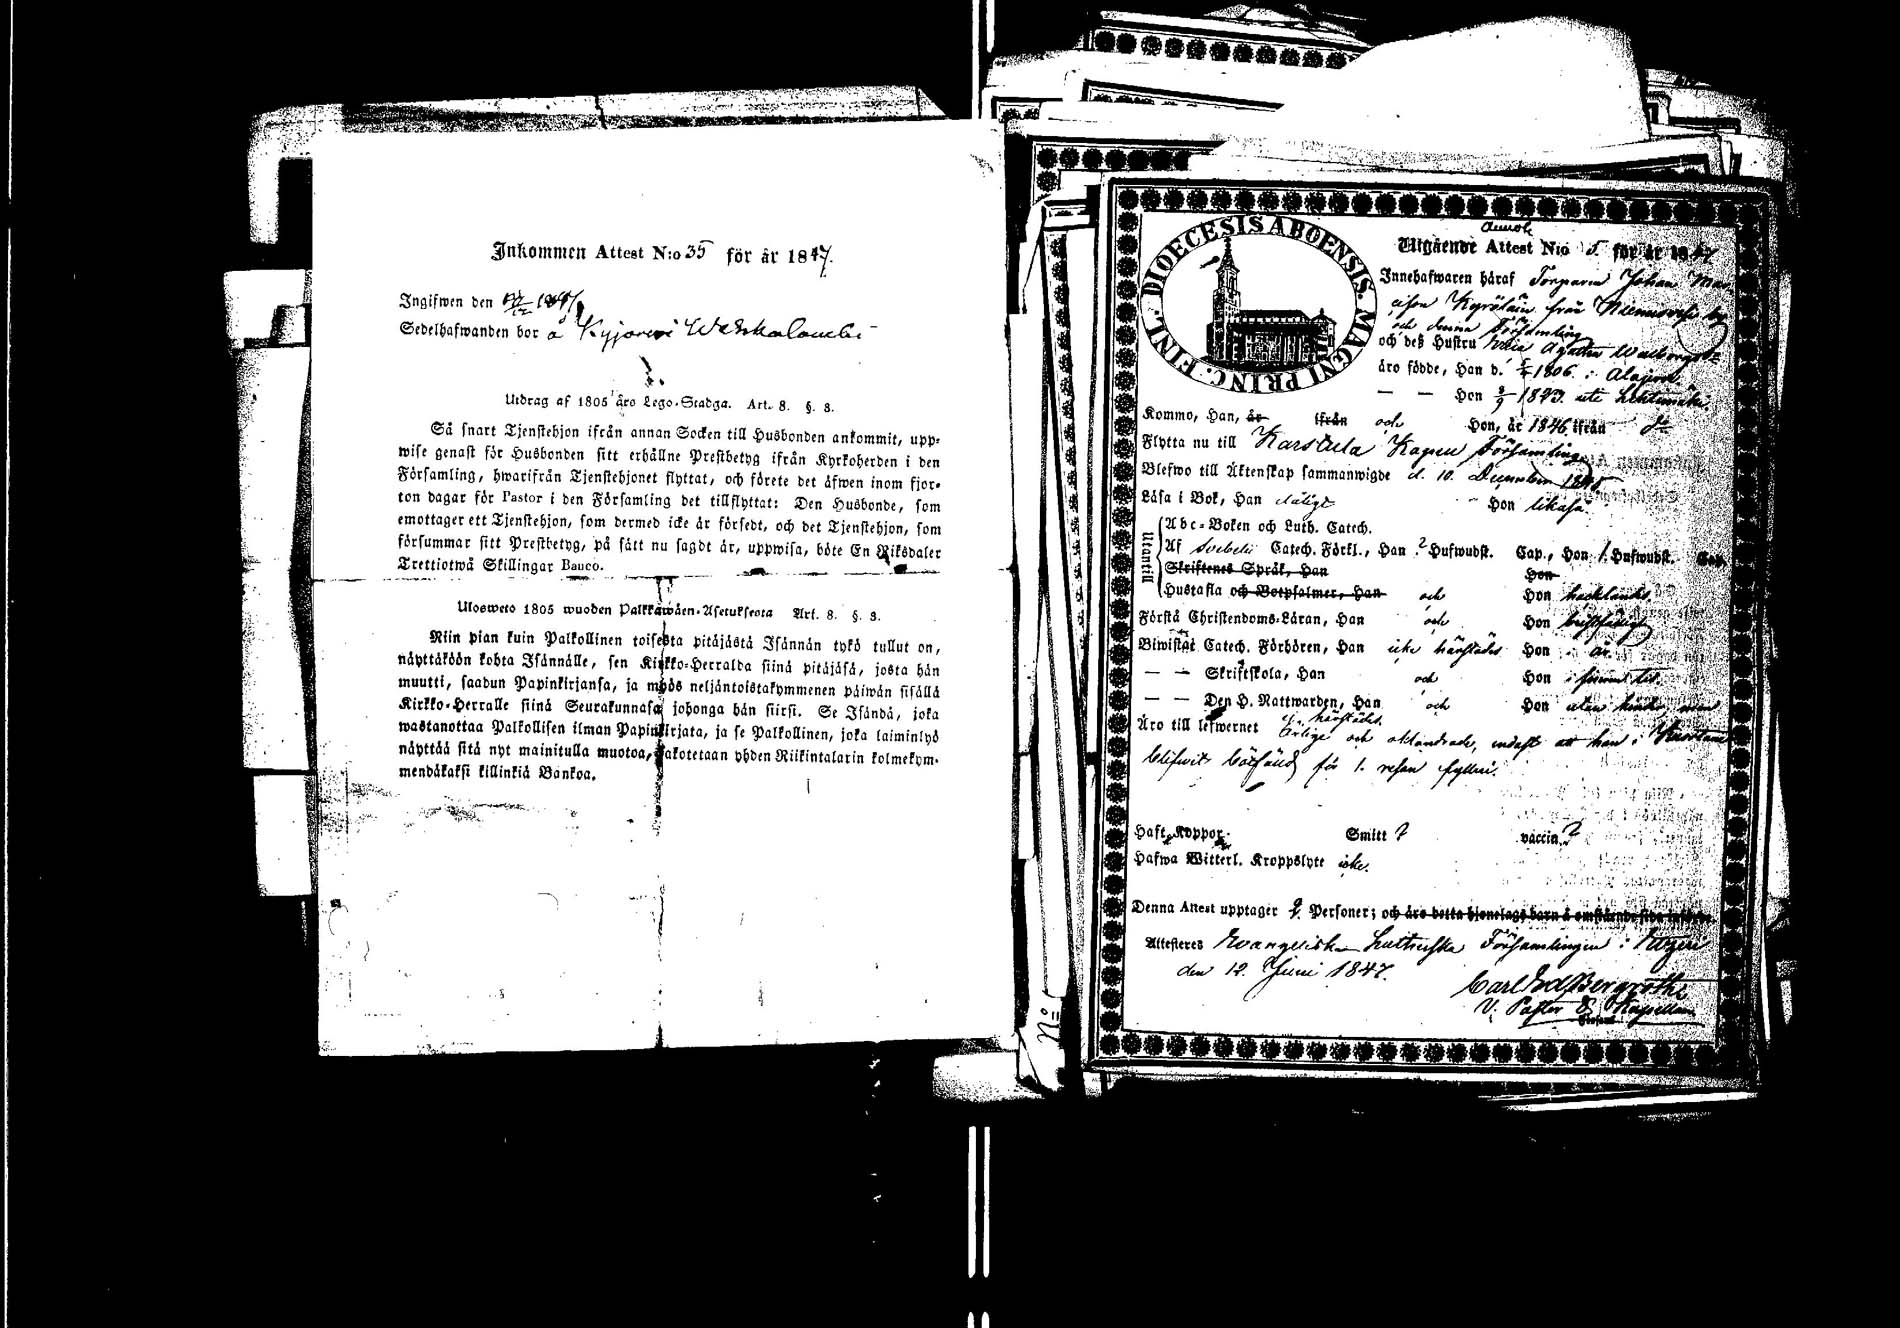 Inkommen Attest N:o 35 för år 1847.
Ingifwen den
Sedelhafwanden bor å Kyjärvi
Utdrag af 1805 års Lego-Stadga. Art. 8. §. 3.
Så snart Tjenstehjon ifrån annan Socken till Husbonden ankommit, upp-
wise genast för Husbonden sitt erhållne Prestbetyg ifrån Kyrkoherden i den
Församling, hwarifrån Tjenstehjonet flyttat, och förete det äfwen inom fjor-
ton dagar för Pastor i den Församling det tillflyttat: Den Husbonde, som
emottager ett Tjenstehjon, som dermed icke är försedt, och det Tjenstehjon, som
försummar sitt Prestbetyg, på sätt nu sagdt är, uppwisa, böte En Riksdaler
Trettiotwå Skillingar Banco.
Ulosweto 1805 wuoden Palkkawäen-Asetuksesta Art. 8. §. 3.
Niin pian kuin Palkollinen toisesta pitäjästä Isännän tykö tullut on,
näyttäköön kohta Isännälle, sen Kirkko-Herralda siinä pitäjäsä, josta hän
muutti, saadun Papinkirjansa, ja myös neljäntoistakymmenen päiwän sisällä
Kirkko-Herralle siinä Seurakunnasa johonga hän siirsi. Se Isändä, joka
wastanottaa Palkollisen ilman Papinkirjata, ja se Palkollinen, joka laiminlyö
näyttää sitä nyt mainitulla muotoa, sakotetaan yhden Riikintalarin kolmekym-
mendäkaksi killinkiä Bankoa.
DIOECESIS ABOENSIS. MAGNI PRINC. FINL.
Utgående Attest N:o 5. för år 1847
Innehafwaren häraf Torparen Johan
från
och denna Församling
och deß Hustru Agatha
äro födde, Han d. 1806 i Alajärvi
— — Hon 1823
Kommo, Han, år ifrån och Hon, år 1846 ifrån
Flytta nu till Karstula Kapell Församling
Blefwo till Äktenskap sammanwigde d. 10. December
Läsa i Bok, Han dåligt Hon likaså
Utantill
Abc-Boken och Luth. Catech.
Af Svebelii Catech. Förkl., Han 2 Hufwudst. Cap., Hon 1. Hufwudst. Cap.
Skriftenes Språk, Han Hon
Hustafla och Botpsalmer, Han och Hon
Förstå Christendoms-Läran, Han och Hon bristfälligt
Biwistat Catech. Förhören, Han icke härstädes Hon i år
— — Skriftskola, Han och Hon
— — Den H. Nattwarden, Han och Hon utan hinder, men
ej härstädes
Äro till lefwernet ärlige och oklandrade, endast att han i Karstula
blifwit bötfälld för 1. resan fylleri.
Haft Koppor. Smitt ? vaccin. ?
Hafwa Witterl. Kroppslyte icke.
Denna Attest upptager 2 Personer; och äro detta hjonelags barn å omstående sida införde.
Attesteres Evangeliskt Lutherska Församlingen i
den 12. Juni 1847.
Carl Ed Bergroth
V. Pastor & Kapellan
N:o